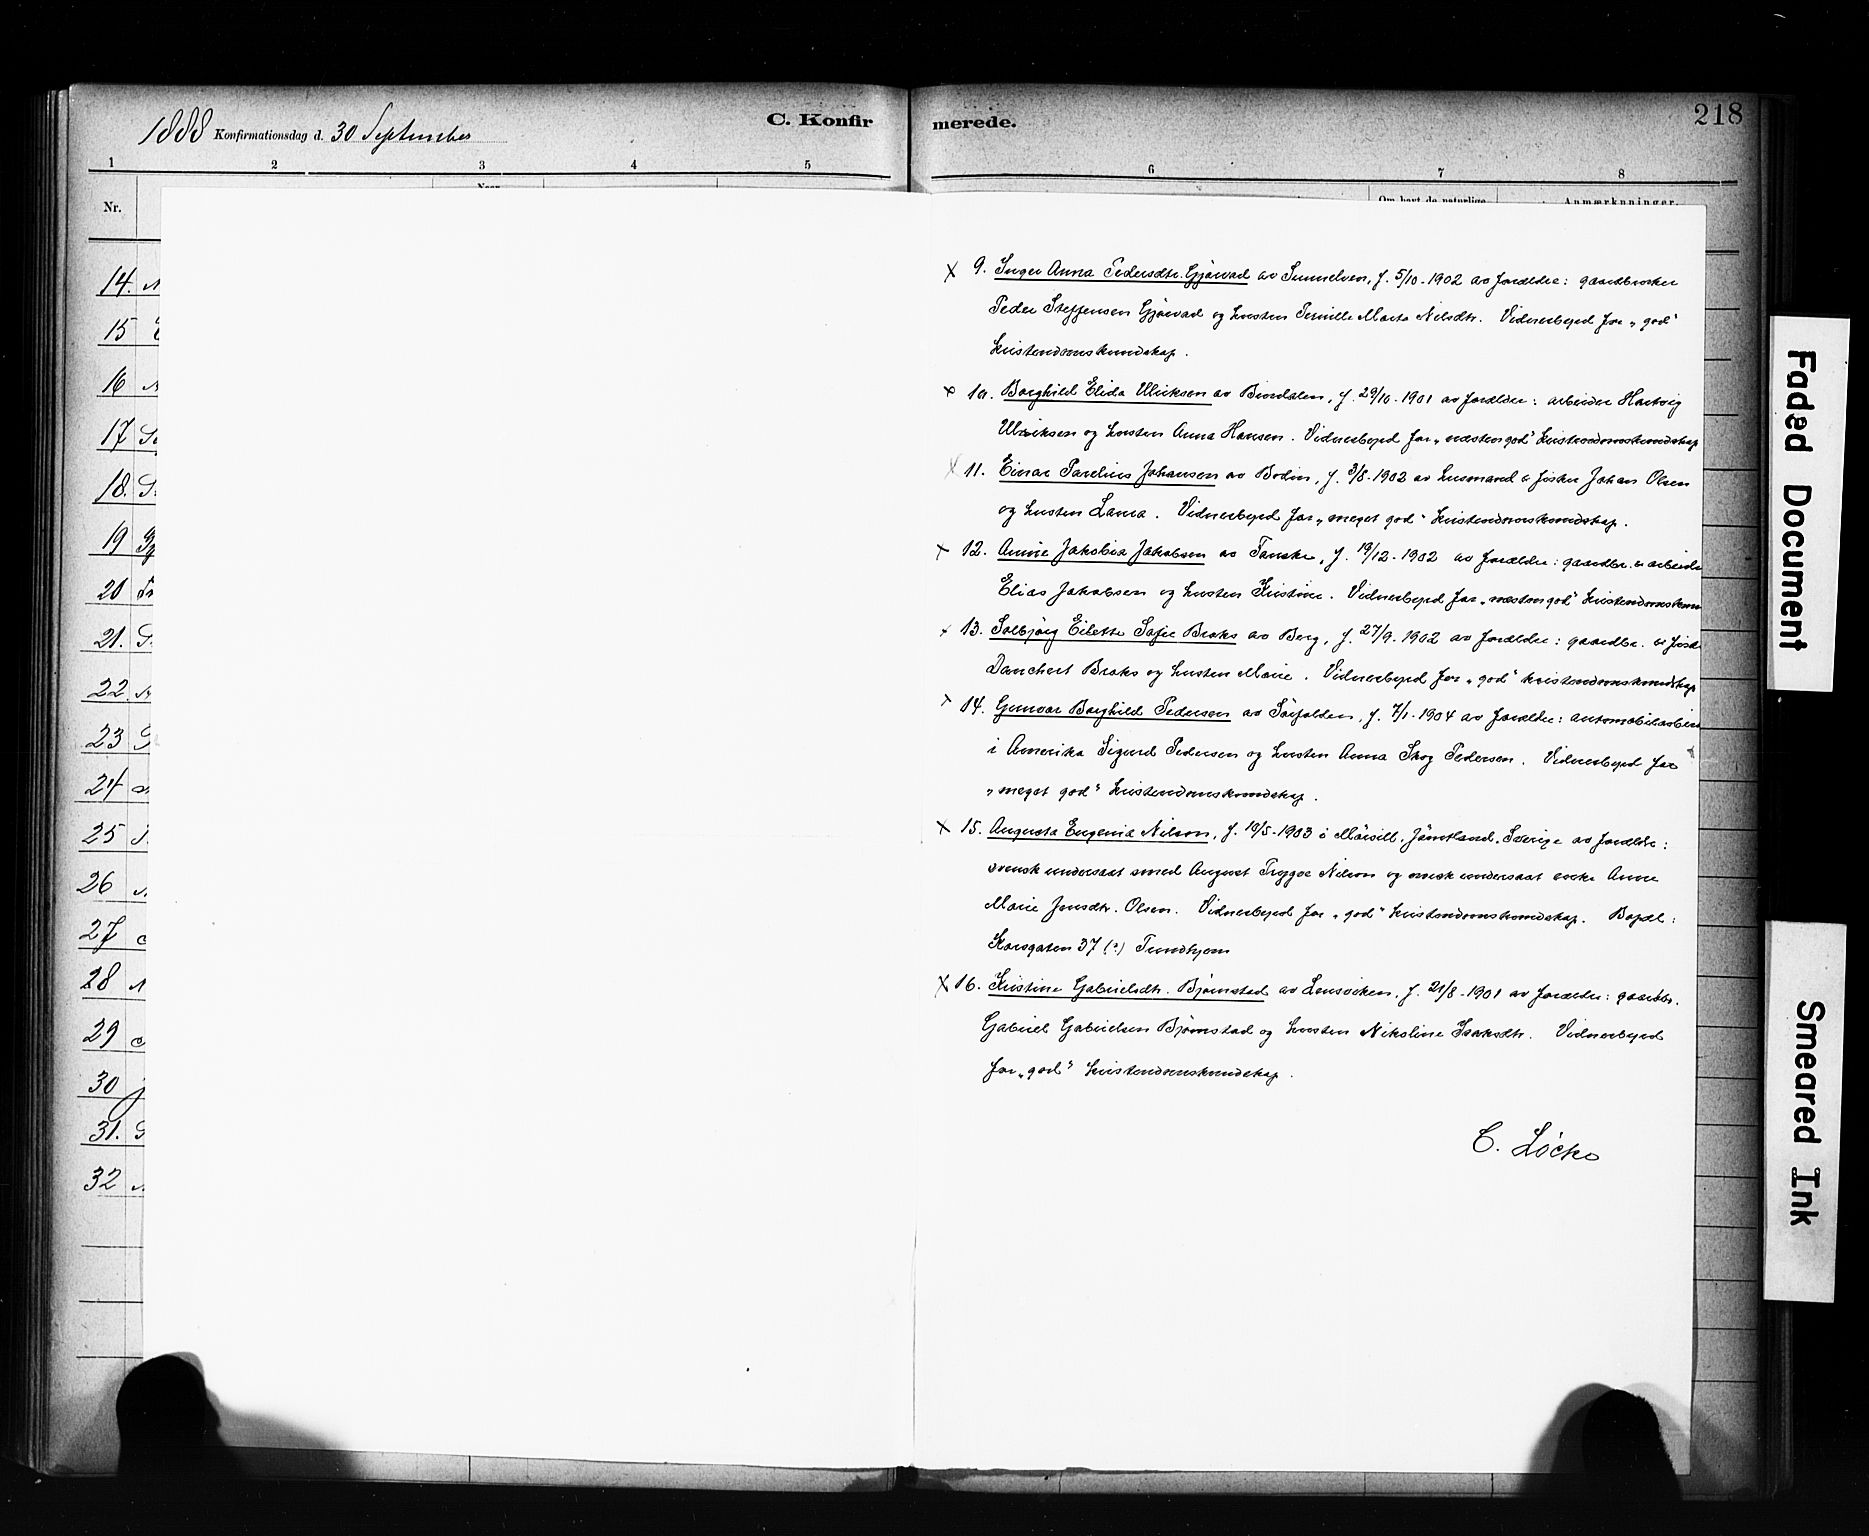 1888 Konfirmationsdag d. 30 September
C. Konfir
merede.
218
1 2 3 4 5
6 7 8
Nr.
Anmærkninger.
14.
15
16
17
18.
19
20
21.
22.
23
24
25
26
27
28
29
30
31.
32
9. Inger Anna Pedersdtr. Gjørvad av Sunnelven, f. 5/10-1902 av foreldre: gaardbruker
Peder Steffensen Gjørvad og hustru Pernille Marta Nilsdtr. Vidnesbyrd for „god“
kristendomskundskap.
10. Borghild Elida Ulriksen av Beiardalen, f. 29/10-1901 av foreldre: arbeider Hartvig
Ulriksen og hustru Anna Hansen. Vidnesbyrd for „næsten god“ kristendomskundskap
11. Einar Parelius Johansen av Bodin, f. 3/8-1902 av husmand & fisker Johan Olsen
og hustru Laura. Vidnesbyrd for „meget god“ kristendomskundskap.
12. Annie Jakobia Jakobsen av Fauske, f. 19/12-1902 av foreldre: gaardbr. & arbeide
Elias Jakobsen og hustru Kristine. Vidnesbyrd for „næsten god“ kristendomskun
13. Solbjørg Eilette Sofie Broks av Borg, f. 27/9-1902 av foreldre: gaardbr. & fisk
Danchert Broks og hustru Marie. Vidnesbyrd for „god“ kristendomskundskap
14. Gunvor Borghild Pedersen av Sørfolden, f. 7/1-1904 av foreldre: automobilarbei
i Amerika Sigurd Pedersen og hustru Anna Skog Pedersen. Vidnesbyrd for
„meget god“ kristendomskundskap.
15. Augusta Eugenia Nilson, f. 19/5-1903 i Mörsill, Jämtland, Sverige av foreldre:
svensk undersaat smed August Tryggve Nilson og norsk undersaat Anne
Marie Jensdtr. Olsen. Vidnesbyrd for „god“ kristendomskundskap. Bopæl:
Korsgaten 37 (?) Trondhjem
16. Kristine Gabrielsdtr. Bjørnstad av Lensviken, f. 21/8-1901 av foreldre: gaardbr.
Gabriel Gabrielsen Bjørnstad og hustru Nikoline Isaksdtr. Vidnesbyrd
for „god“ kristendomskundskap.
C. Löcke
Faded Document
Smeared Ink